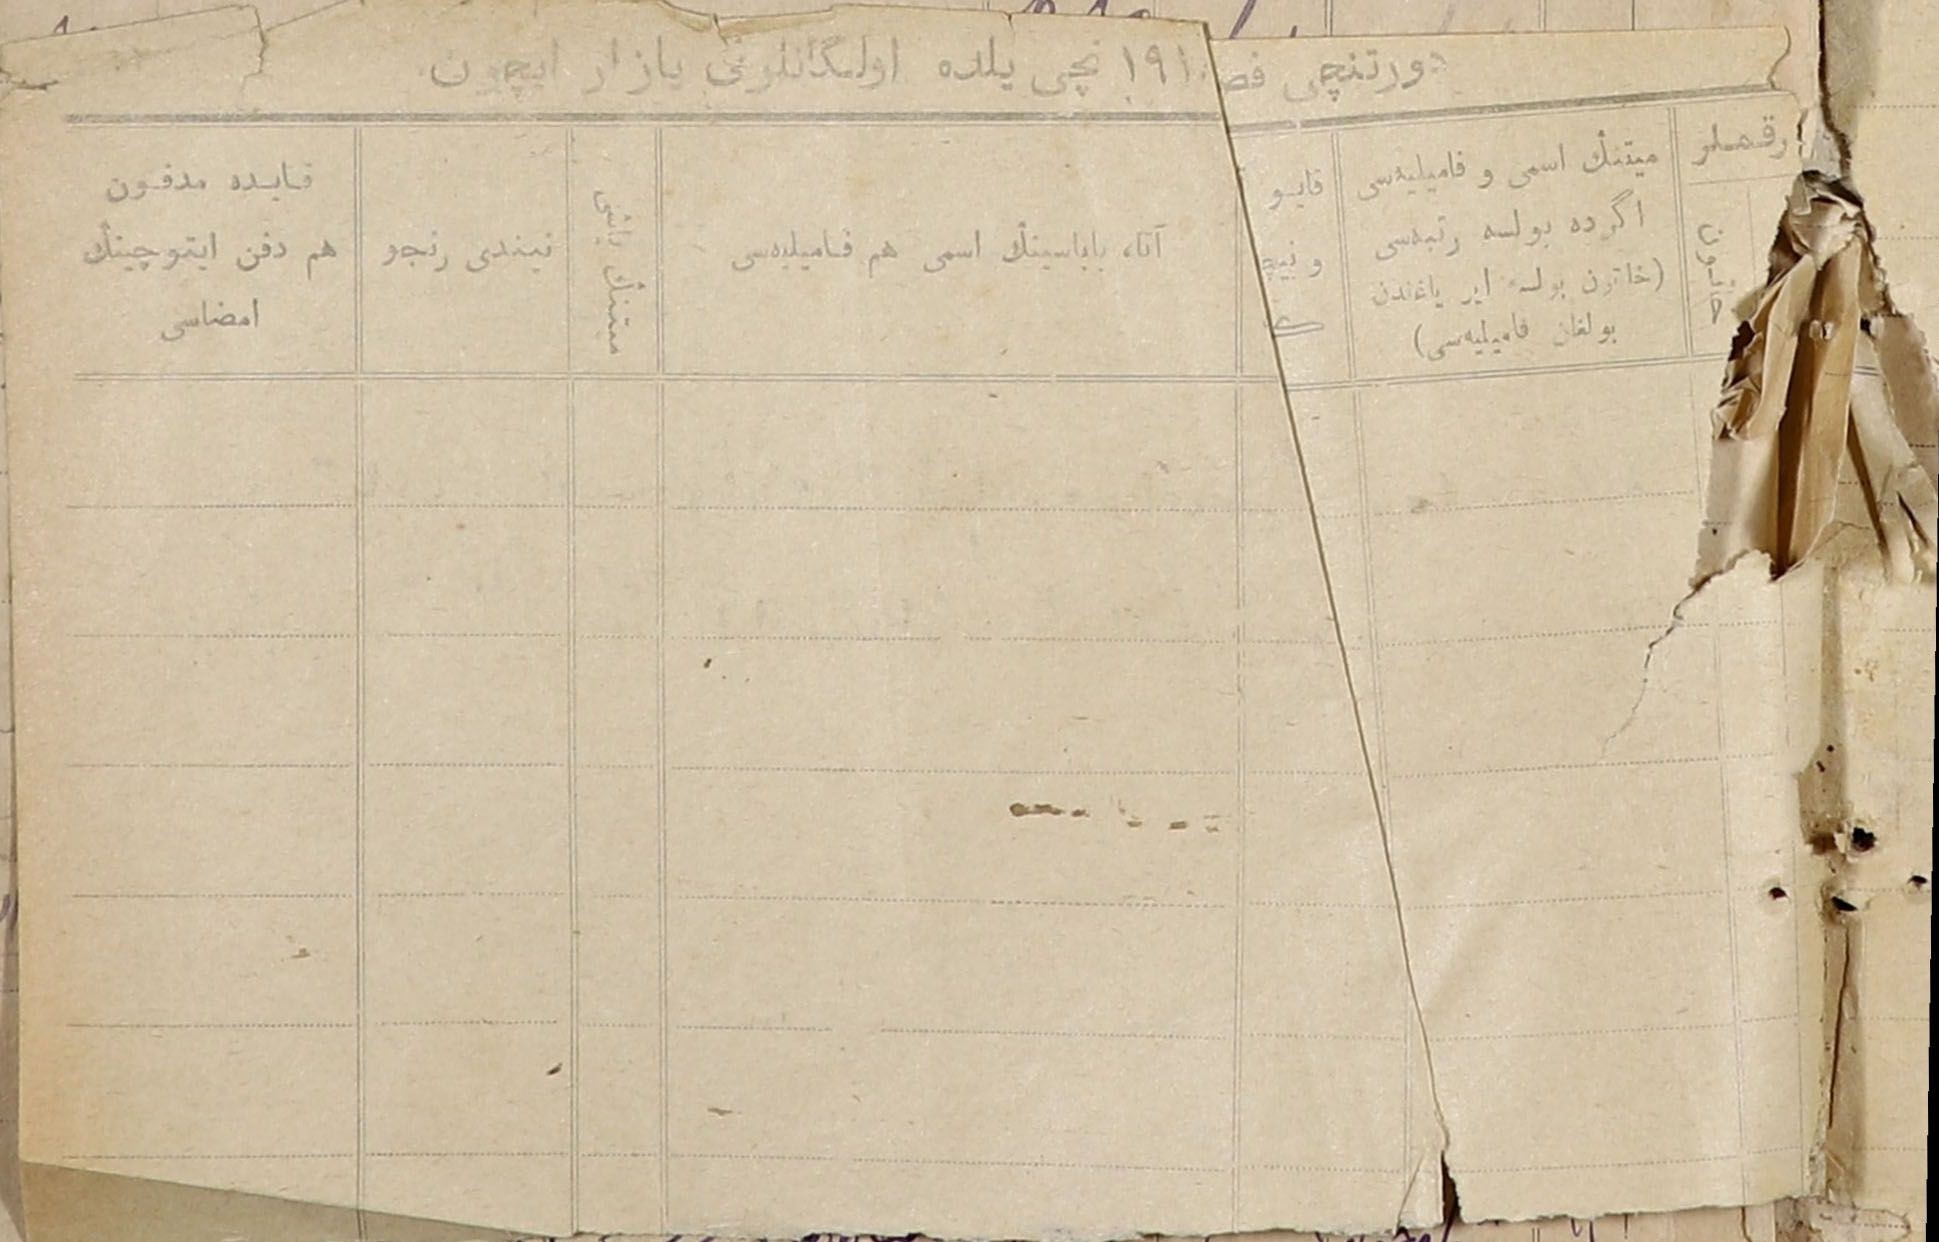 دورتنچی فص ۱۹۱ نچی یلده اولگانلرنی یازار ایچون
رقملر
خاتون
میتنڭ اسمی و فامیلیه‌سی
اگرده بولسه رتبه‌سی
(خاتون بولسه ایر یاغندن
بولغان فامیلیه‌سی)
قایو
و نیچ
آتا، باباسینڭ اسمی هم فامیلیه‌سی
میتنڭ یاشی
نیندی رنجو
قایده مدفون
هم دفن ایتوچینڭ
امضاسی